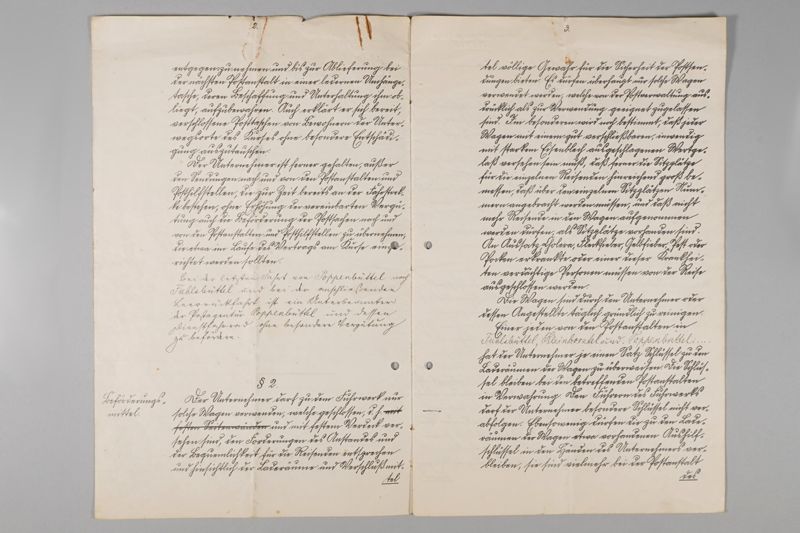 2.
entgegenzunehmen und bis zur Ablieferung bei
der nächsten Postanstalt in einer ledernen Umhänge-
tasche, deren Beschaffung und Unterhaltung ihm ob-
liegt, aufzubewahren. Auch erklärt er sich bereit,
verschlossene Posttaschen von Bewohnern der Unter-
wegsorte des Kurses ohne besondere Entschädi-
gung auszutauschen.
Der Unternehmer ist ferner gehalten, außer
den Sendungen nach und von den Postanstalten und
Posthilfstellen, die zur Zeit bereits an der Fahrstrek-
ke bestehen, ohne Erhöhung der vereinbarten Vergü-
tung auch die Beförderung der Postsachen nach und
von den Postanstalten und Posthilfstellen zu übernehmen,
die etwa im Laufe des Vertrags am Kurse einge-
richtet werden sollten.
Bei der letzten Fahrt von Poppenbüttel nach
Fuhlsbüttel und bei der anschließenden
Leerrückfahrt ist ein Unterbeamter
der Postagentur Poppenbüttel und dessen
ohne besondere Vergütung
zu befördern.
§ 2
Beförderungs-
mittel.
Der Unternehmer darf zu dem Fuhrwerk nur
solche Wagen verwenden, welche geschlossen, d. h. mit
festen Seitenwänden und mit festem Verdeck ver-
sehen sind, den Forderungen des Anstandes und
der Bequemlichkeit für die Reisenden entsprechen
und hinsichtlich der Laderäume und Verschlußmit-
tel
3.
tel völlige Gewähr für die Sicherheit der Postsen-
dungen bieten. Es dürfen überhaupt nur solche Wagen
verwendet werden, welche von der Postverwaltung aus-
drücklich als zur Verwendung geeignet zugelassen
sind. Im besonderen wird noch bestimmt, daß jeder
Wagen mit einem gut verschließbaren, inwendig
mit starkem Eisenblech ausgeschlagenen Wertge-
laß versehen sein muß, daß ferner die Sitzplätze
für die einzelnen Reisenden hinreichend groß be-
messen, daß über den einzelnen Sitzplätzen Num-
mern angebracht werden müssen, und daß nicht
mehr Reisende in den Wagen aufgenommen
werden dürfen, als Sitzplätze vorhanden sind.
An Aussatz, Cholera, Flecktyphus, Gelbfieber, Pest oder
Pocken erkrankte oder einer dieser Krankhei-
ten verdächtige Personen müssen von der Reise
ausgeschlossen werden.
Die Wagen sind durch den Unternehmer oder
dessen Angestellte täglich gründlich zu reinigen.
Einer jeden von den Postanstalten in
Fuhlsbüttel, Kleinborstel und Poppenbüttel
hat der Unternehmer je einen Satz Schlüssel zu den
Laderäumen der Wagen zu überweisen. Die Schlüs-
sel bleiben bei den betreffenden Postanstalten
in Verwahrung. Den Führern des Fuhrwerks
darf der Unternehmer besondere Schlüssel nicht ver-
abfolgen. Ebensowenig dürfen die zu den Lade-
räumen der Wagen etwa vorhandenen Aushilf-
schlüssel in den Händen des Unternehmers ver-
bleiben, sie sind vielmehr bei der Postanstalt
des